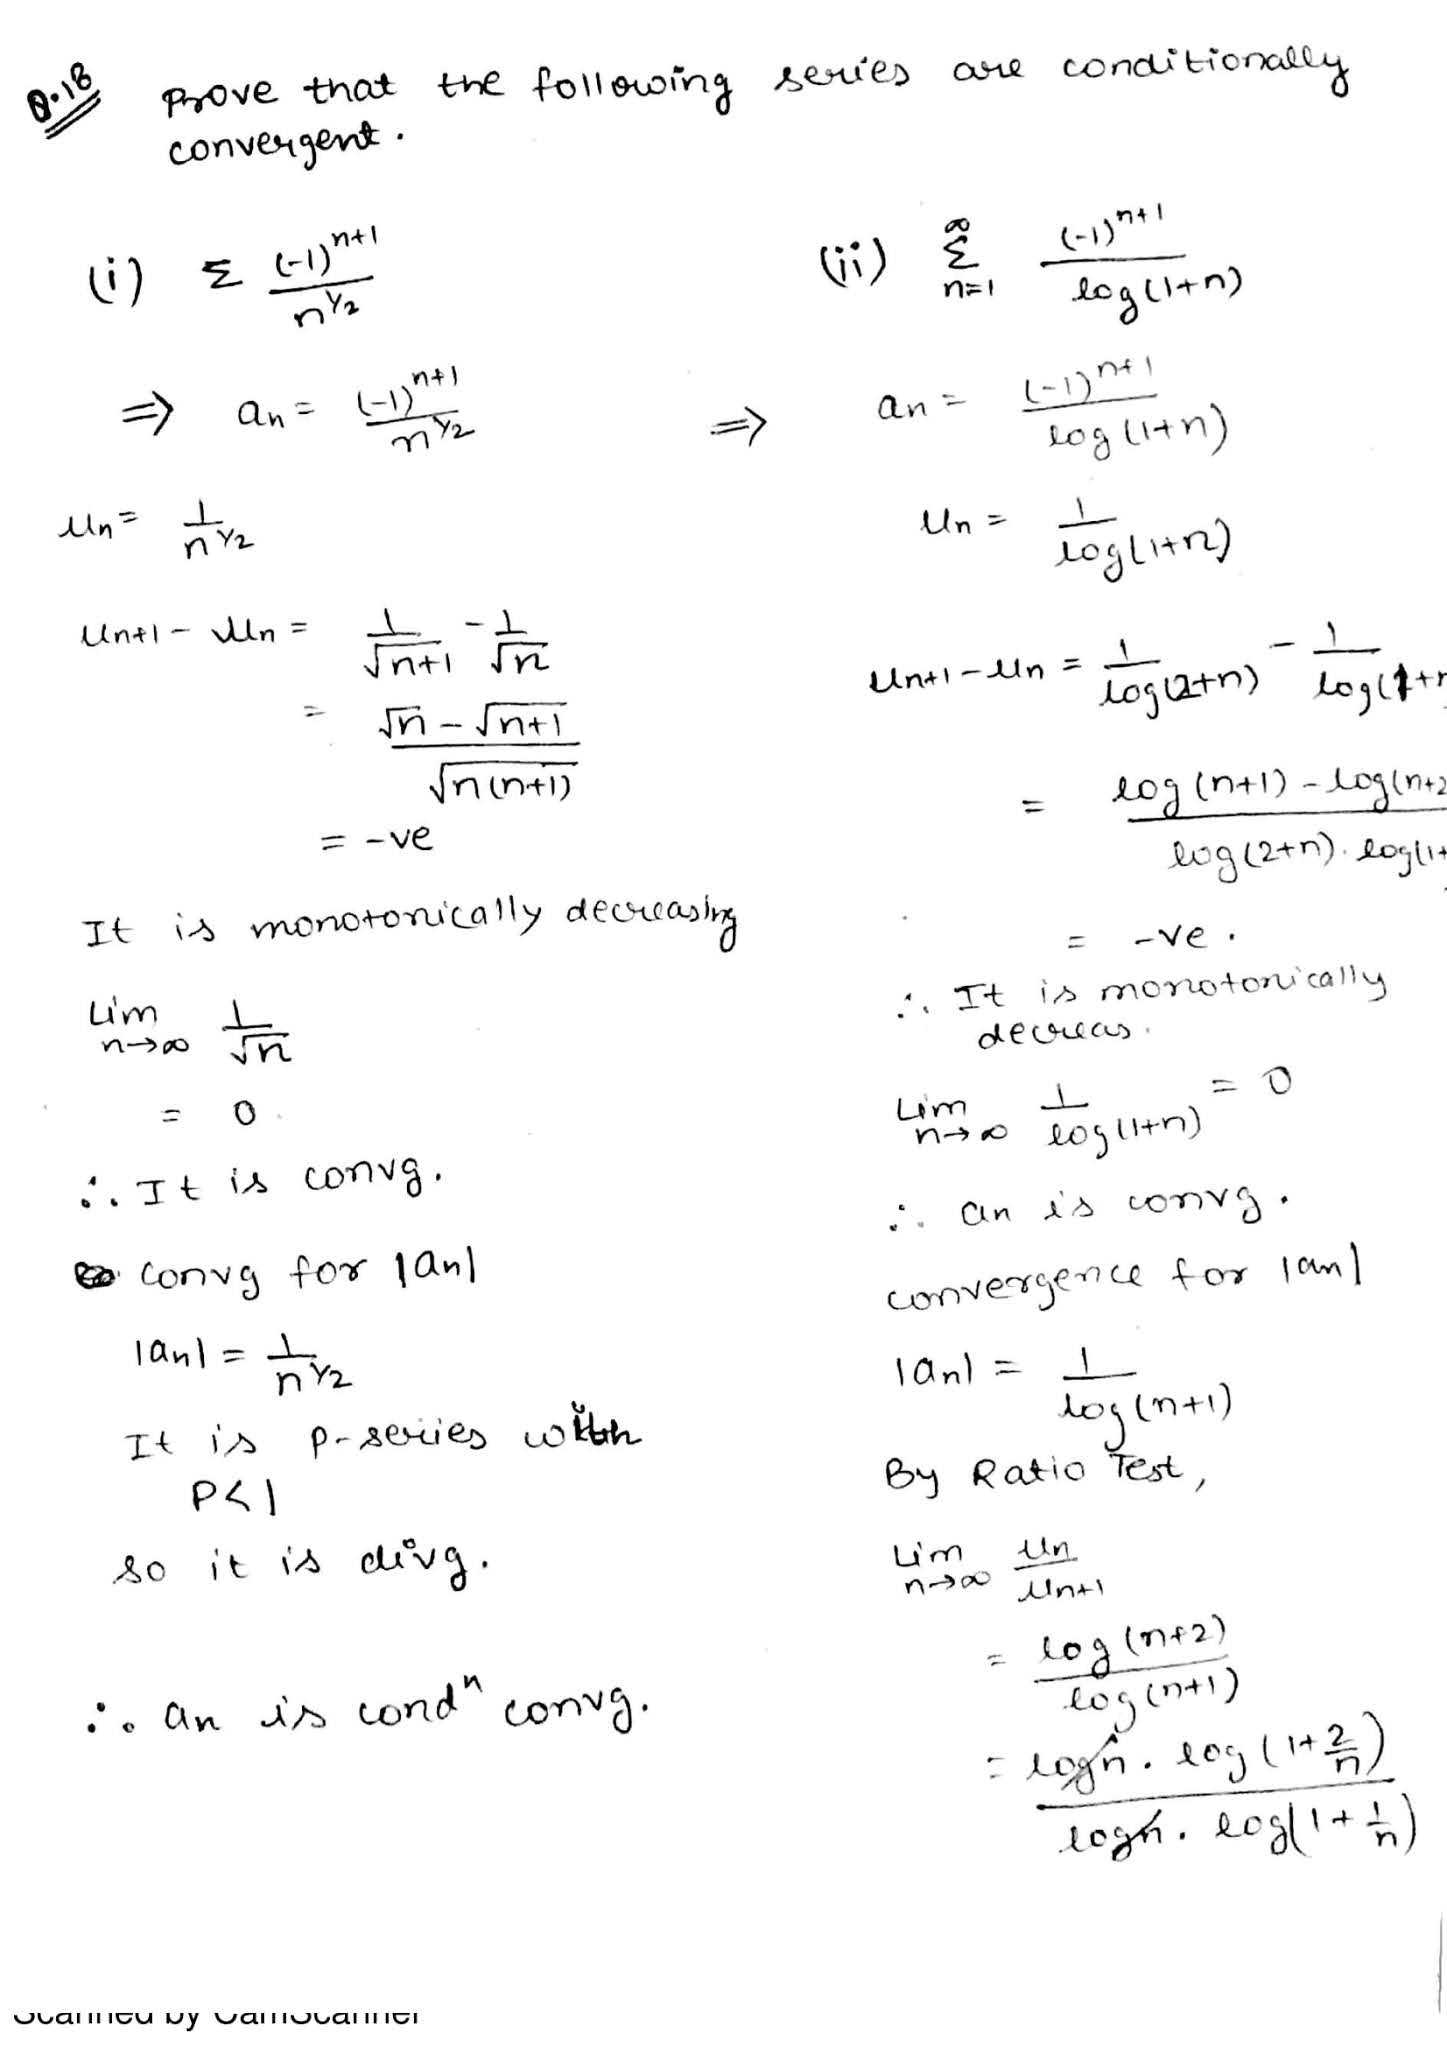 Q.18 Prove that the following series are conditionally
convergent.
(i) Σ (-1)^{n+1} / n^{1/2}
⇒ an = (-1)^{n+1} / n^{1/2}
un = 1 / n^{1/2}
un+1 - un = 1/√n+1 - 1/√n
= √n - √n+1 / √n(n+1)
= -ve
It is monotonically decreasing
Lim n→∞ 1/√n
= 0
∴ It is convg.
convg for |an|
|an| = 1 / n^{1/2}
It is p-series with
P<1
so it is divg.
∴ an is cond^n convg.
(ii) ∞ Σ n=1 (-1)^{n+1} / log(1+n)
⇒ an = (-1)^{n+1} / log(1+n)
un = 1 / log(1+n)
un+1 - un = 1/log(2+n) - 1/log(1+n
= log(n+1) - log(n+2 / log(2+n). log(1+
= -ve.
∴ It is monotonically
decreas.
Lim n→∞ 1/log(1+n) = 0
∴ an is convg.
convergence for |an|
|an| = 1 / log(n+1)
By Ratio Test,
Lim n→∞ un / un+1
= log(n+2) / log(n+1)
= logn. log(1+2/n) / logn. log(1+1/n)
Scanned by CamScanner